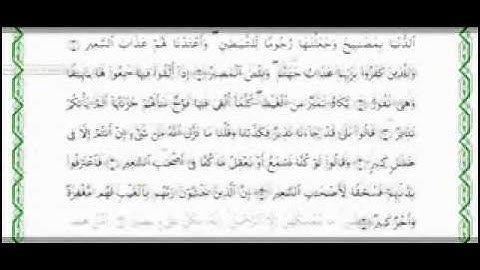 ٱلدُّنْيَا بِمَصَٰبِيحَ وَجَعَلْنَٰهَا رُجُومًا لِّلشَّيَٰطِينِ ۖ وَأَعْتَدْنَا لَهُمْ عَذَابَ ٱلسَّعِيرِ
وَلِلَّذِينَ كَفَرُوا۟ بِرَبِّهِمْ عَذَابُ جَهَنَّمَ ۖ وَبِئْسَ ٱلْمَصِيرُ إِذَآ أُلْقُوا۟ فِيهَا سَمِعُوا۟ لَهَا شَهِيقًا
وَهِىَ تَفُورُ تَكَادُ تَمَيَّزُ مِنَ ٱلْغَيْظِ ۖ كُلَّمَآ أُلْقِىَ فِيهَا فَوْجٌ سَأَلَهُمْ خَزَنَتُهَآ أَلَمْ يَأْتِكُمْ
نَذِيرٌ قَالُوا۟ بَلَىٰ قَدْ جَآءَنَا نَذِيرٌ فَكَذَّبْنَا وَقُلْنَا مَا نَزَّلَ ٱللَّهُ مِن شَىْءٍ إِنْ أَنتُمْ إِلَّا فِى
ضَلَٰلٍ كَبِيرٍ وَقَالُوا۟ لَوْ كُنَّا نَسْمَعُ أَوْ نَعْقِلُ مَا كُنَّا فِىٓ أَصْحَٰبِ ٱلسَّعِيرِ فَٱعْتَرَفُوا۟
بِذَنۢبِهِمْ فَسُحْقًا لِّأَصْحَٰبِ ٱلسَّعِيرِ إِنَّ ٱلَّذِينَ يَخْشَوْنَ رَبَّهُم بِٱلْغَيْبِ لَهُم مَّغْفِرَةٌ
وَأَجْرٌ كَبِيرٌ